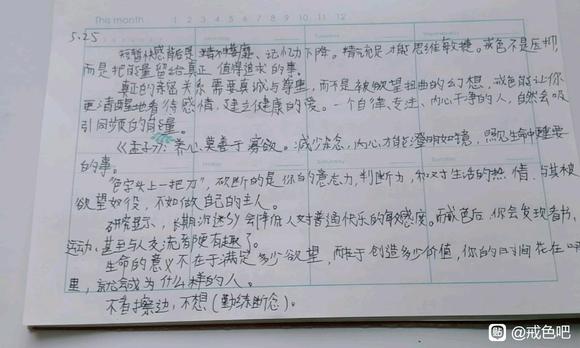 This month 1 2 3 4 5 6 7 8 9 10 11 12
5.25
短暂快感背后是精神萎靡、记忆力下降。精气充足才能思维敏捷。戒色不是压抑,
而是把能量留给真正值得追求的事。
真正的亲密关系需要真诚与尊重,而不是被欲望扭曲的幻想,戒色能让你
更清醒地看待感情,建立健康的爱。一个自律、专注、内心干净的人,自然会吸
引同频的能量。
《孟子》:养心莫善于寡欲。减少杂念,内心才能澄明如镜,照见生命中重要
的事。
“色字头上一把刀”,砍断的是你的意志力,判断力,和对生活的热情,与其被
欲望奴役,不如做自己的主人。
研究显示,长期沉迷SY会降低人对普通快乐的敏感度。而戒色后,你会发现看书、
运动、甚至与人交流都更有趣了。
生命的意义不在于满足多少欲望,而在于创造多少价值,你的时间花在哪
里,就会成为什么样的人。
不看擦边,不想(勤练断念)。
贴 @戒色吧